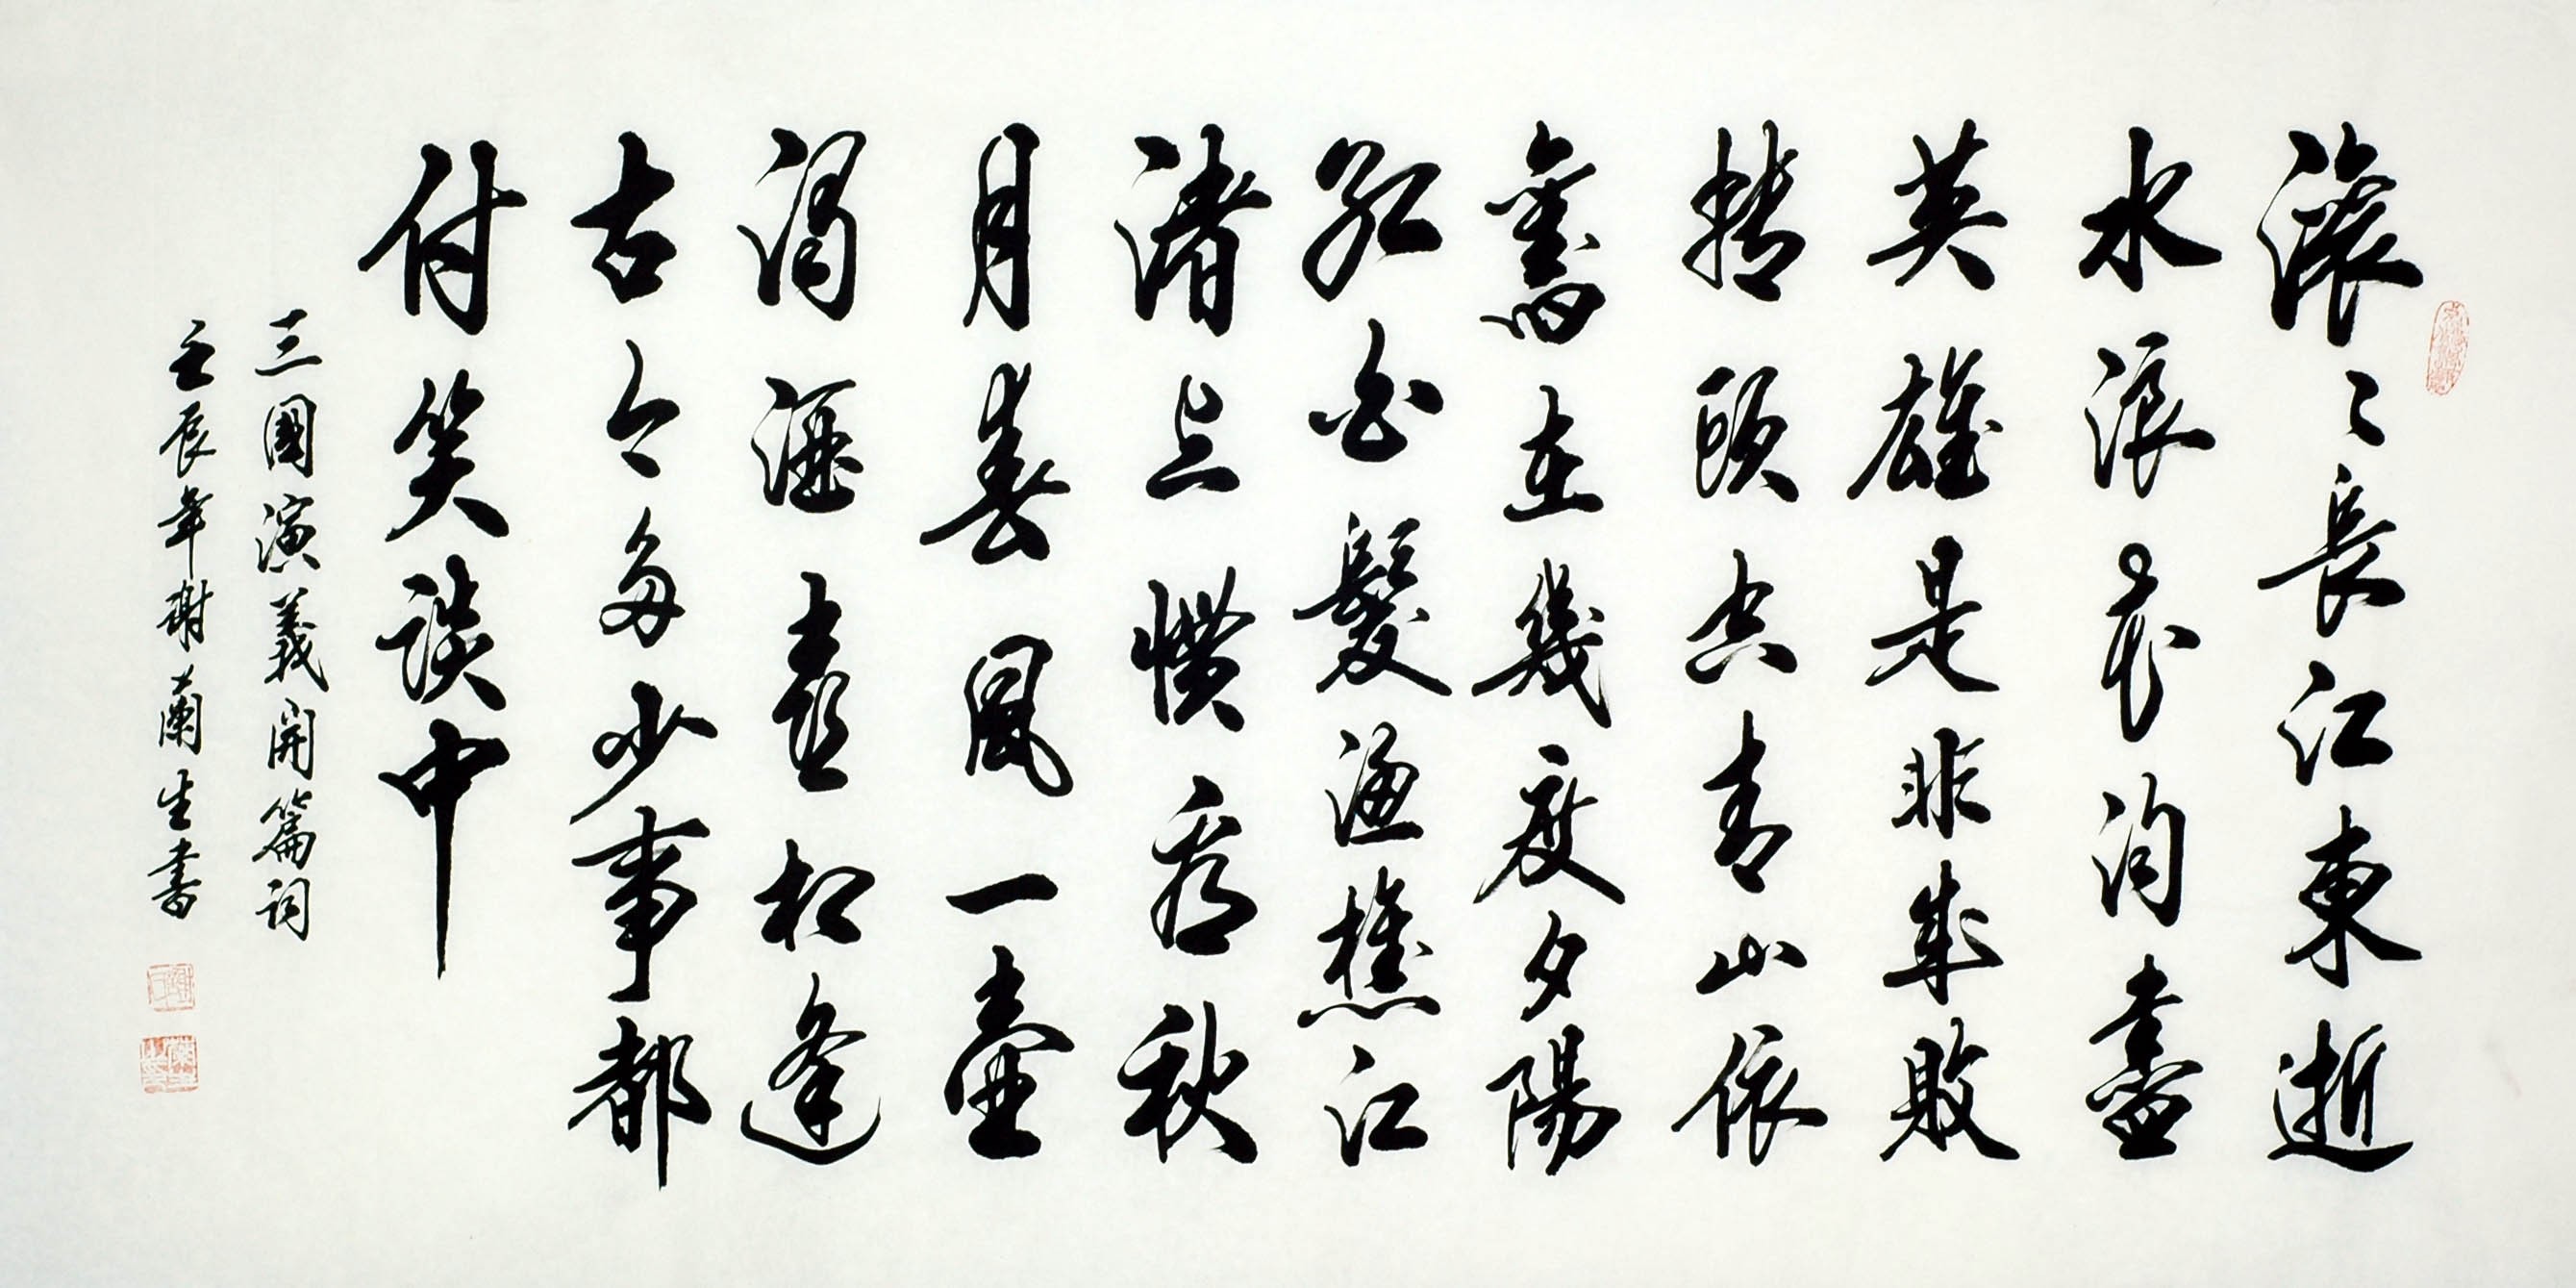 滾〻長江東逝
水浪花淘盡
英雄是非成敗
轉頭空青山依
舊在幾度夕陽
紅白髮漁樵江
渚上慣看秋
月春風一壺
濁酒喜相逢
古今多少事都
付笑談中
三國演義開篇詞
壬辰年謝蘭生書